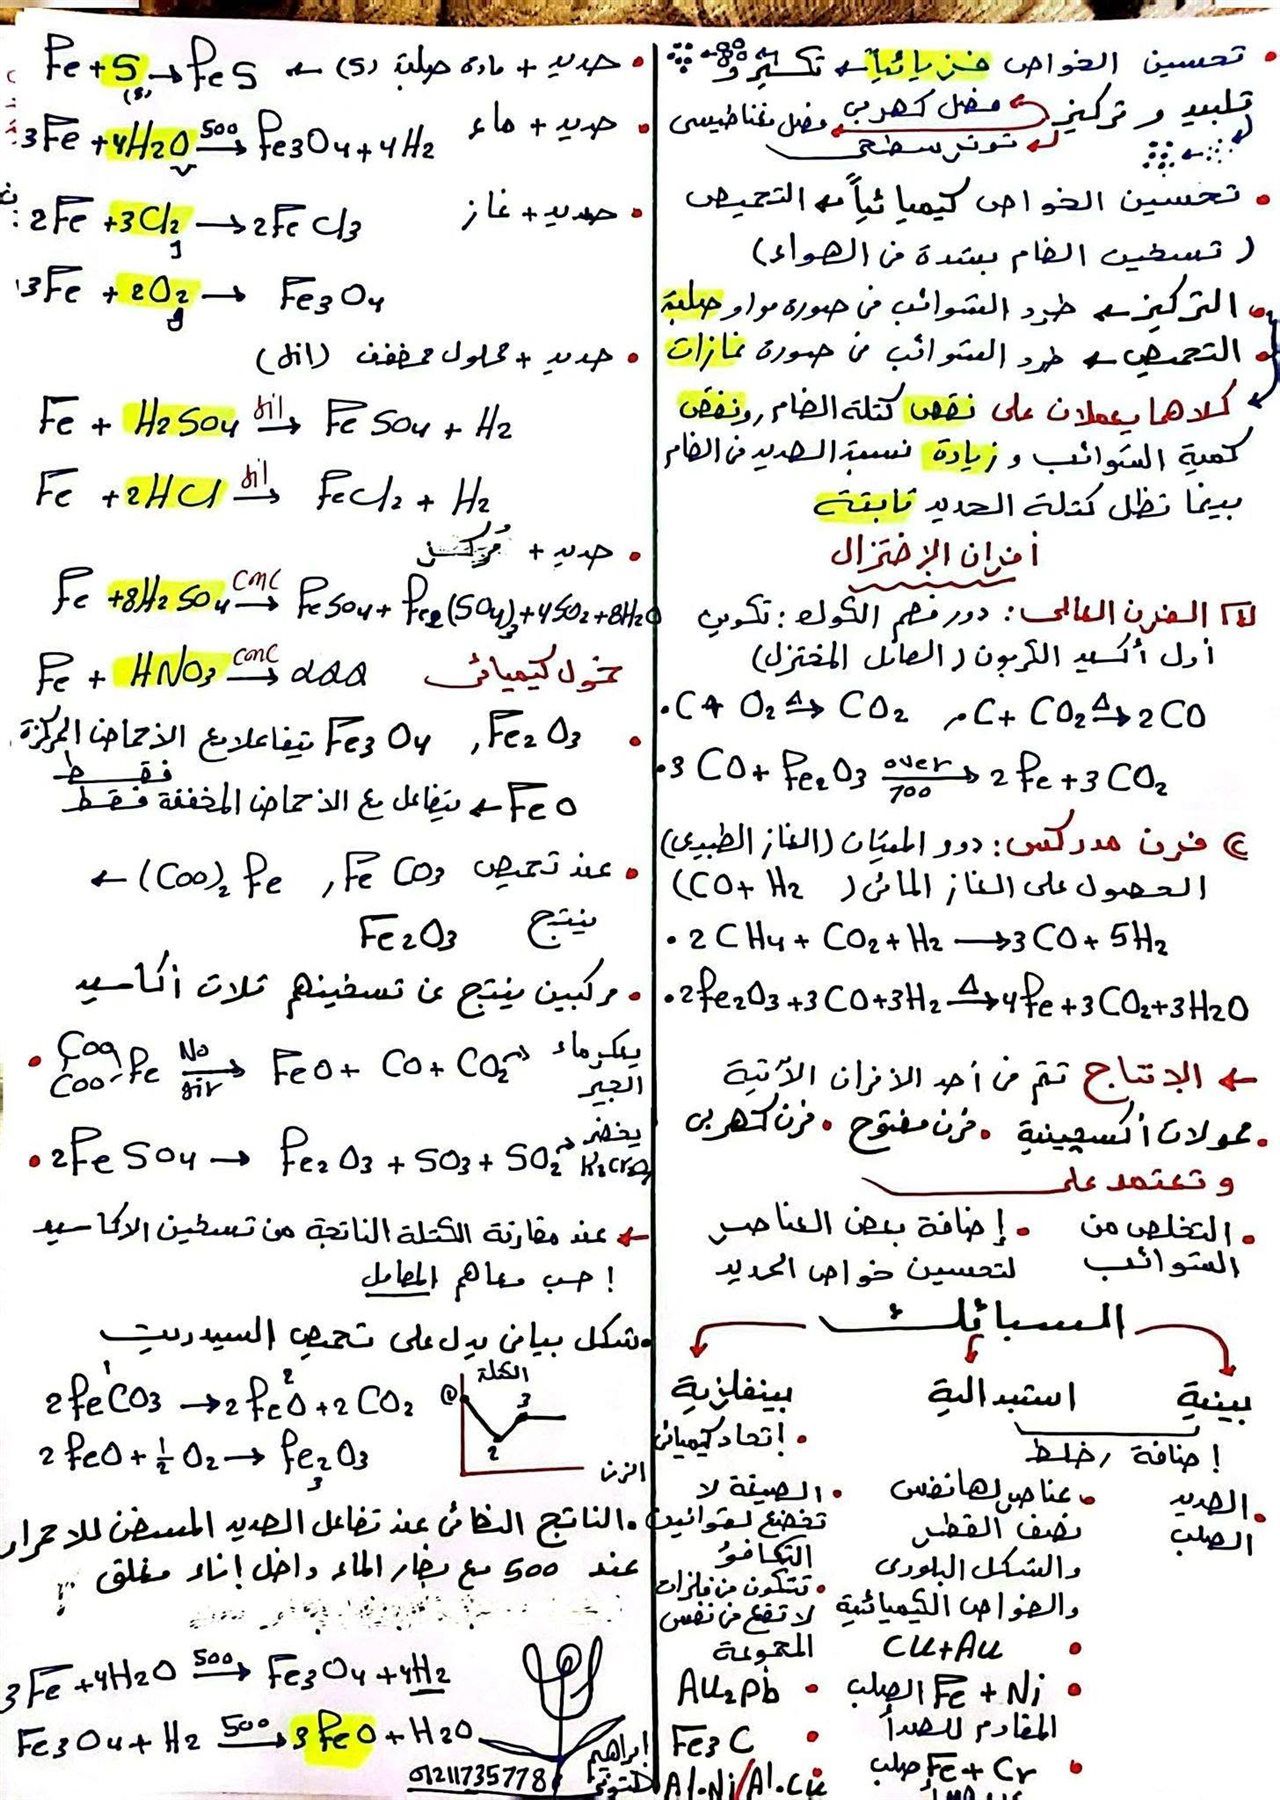 • تحسين الخواص فزيائياً ← تكسير و
تلبيد و تركيز فصل كهربى فصل مغناطيسى
توتر سطحى
• تحسين الخواص كيميائياً ← التحميص
( تسخين الخام بشدة فى الهواء)
• التركيز ← طرد الشوائب فى صورة مواد صلبة
• التحميص ← طرد الشوائب فى صورة غازات
كلاهما يعملان على نقص كتلة الخام, ونقص
كمية الشوائب و زيادة نسبة الحديد فى الخام
بينما تظل كتلة الحديد ثابتة
أفران الإختزال
1 الفرن العالى: دور فحم الكوك: تكوين
أول أكسيد الكربون ( العامل المختزل)
• C + O2 Δ→ CO2 , • C + CO2 Δ→ 2CO
• 3CO + Fe2O3 over 700→ 2Fe + 3CO2
2 فرن مدركس: دور الميثان (الغاز الطبيعى)
الحصول على الغاز المائى ( CO + H2)
• 2CH4 + CO2 + H2 → 3CO + 5H2
• 2Fe2O3 + 3CO + 3H2 Δ→ 4Fe + 3CO2 + 3H2O
← الإنتاج تتم فى أحد الأفران الآتية
• محولات أكسجينية • فرن مفتوح • فرن كهربى
و تعتمد على
• التخلص من الشوائب
• إضافة بعض العناصر
لتحسين خواص الحديد
السبائك
بينية استبدالية بينفلزية
إضافة , خلط
• الحديد الصلب
• عناصر لها نفس
نصف القطر
والشكل البلورى
والخواص الكيميائية
• Cu + Au
• Fe + Ni الصلب
المقاوم للصدأ
• Fe + Cr صلب
• إتحاد كيميائى
• الصيغة لا
تخضع لقوانين
التكافؤ
• تتكون من فلزات
لا تقع فى نفس
المجموعة
• Au2Pb
• Fe3C
• Al.Ni/Al.Cu
• حديد + مادة صلبة (S) ← Fe + S (s) → FeS
• حديد + ماء 3Fe + 4H2O 500→ Fe3O4 + 4H2
• حديد + غاز 2Fe + 3Cl2 g → 2FeCl3
3Fe + 2O2 g → Fe3O4
• حديد + محلول مخفف (dil)
Fe + H2SO4 dil→ FeSO4 + H2
Fe + 2HCl dil→ FeCl2 + H2
• حديد + مركز
Fe + 8H2SO4 Conc→ FeSO4 + Fe2(SO4)3 + 4SO2 + 8H2O
Fe + HNO3 Conc→ خمول كيميائى
• Fe3O4 , Fe2O3 تتفاعلا مع الأحماض المركزة
فقط
FeO ← يتفاعل مع الأحماض المخففة فقط
• عند تحميص FeCO3 , (COO)2Fe ←
ينتج Fe2O3
• مركبين ينتج عن تسخينهم ثلاث أكاسيد
• COO COO Fe No air→ FeO + CO + CO2 → يعكر ماء الجير
• 2FeSO4 → Fe2O3 + SO3 + SO2 → يخضر
← عند مقارنة الكتلة الناتجة من تسخين الأكاسيد
! حسب معاهم المعامل
• شكل بيانى يدل على تحميص السيدريت
2FeCO3 1 → 2FeO 2 + 2CO2
2FeO + ½O2 → Fe2O3 3
الكتلة
1 2 3
الزمن
• الناتج النهائى عند تفاعل الحديد المسخن للاحمرار
عند 500 مع بخار الماء داخل إناء مغلق
3Fe + 4H2O 500→ Fe3O4 + 4H2
Fe3O4 + H2 500→ 3FeO + H2O
ابراهيم
01211735778